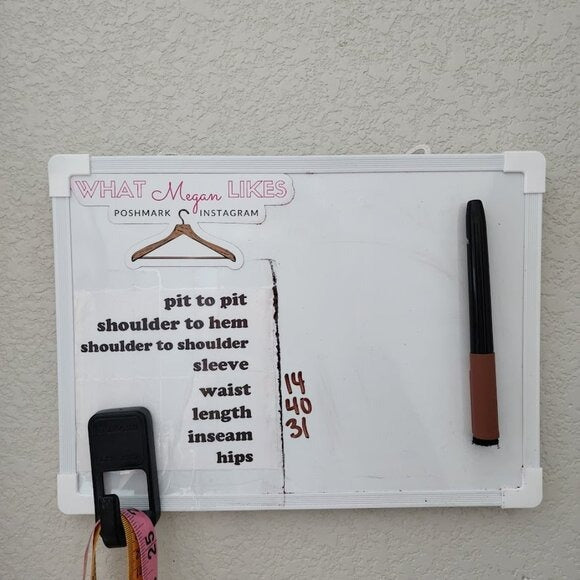 WHAT Megan LIKES
POSHMARK INSTAGRAM
pit to pit
shoulder to hem
shoulder to shoulder
sleeve
waist 14
length 40
inseam 31
hips
25